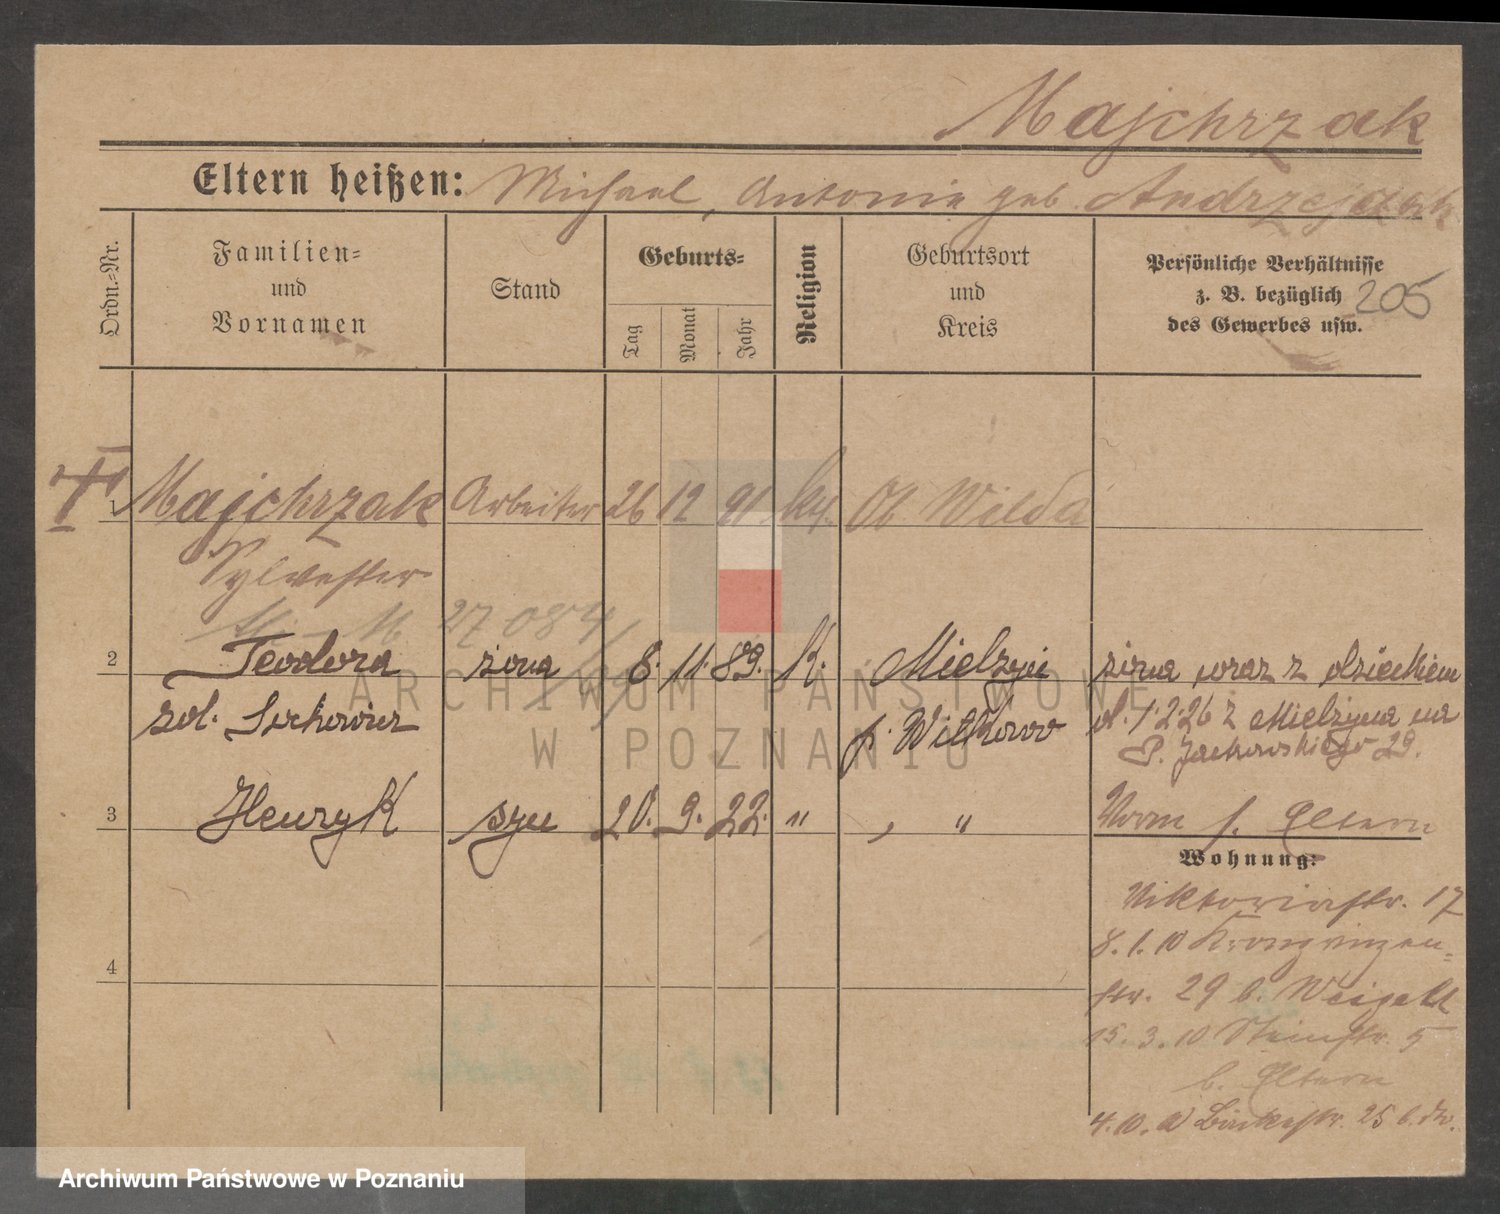 Majchrzak
Eltern heißen: Michael, Antonie geb. Andrzejczak
Ordn.-Nr.
Familien-
und
Vornamen
Stand
Geburts-
Tag
Monat
Jahr
Religion
Geburtsort
und
Kreis
Persönliche Verhältnisse
z. B. bezüglich
des Gewerbes usw.
205
1 Majchrzak Arbeiter 26 12 91 kth. Ob Wilda
Sylvester
27084
2 Teodora żona 8. 11. 89. K. Mielżyn żona wraz z dzieckiem
zol. p. Witkowo d. 1.2.26 z Mielżyna na
P. Jackowskiego 29.
3 Henryk syn 20. 9. 22. " , " Vorm f. Eltern
Wohnung:
Viktoriastr. 17
8.1.10 Kronprinzen-
str. 29 b. Weigelt
15.3.10 Steinstr. 5
b. Eltern
4.10. 25 b.
4
ARCHIWUM PAŃSTWOWE
W POZNANIU
Archiwum Państwowe w Poznaniu